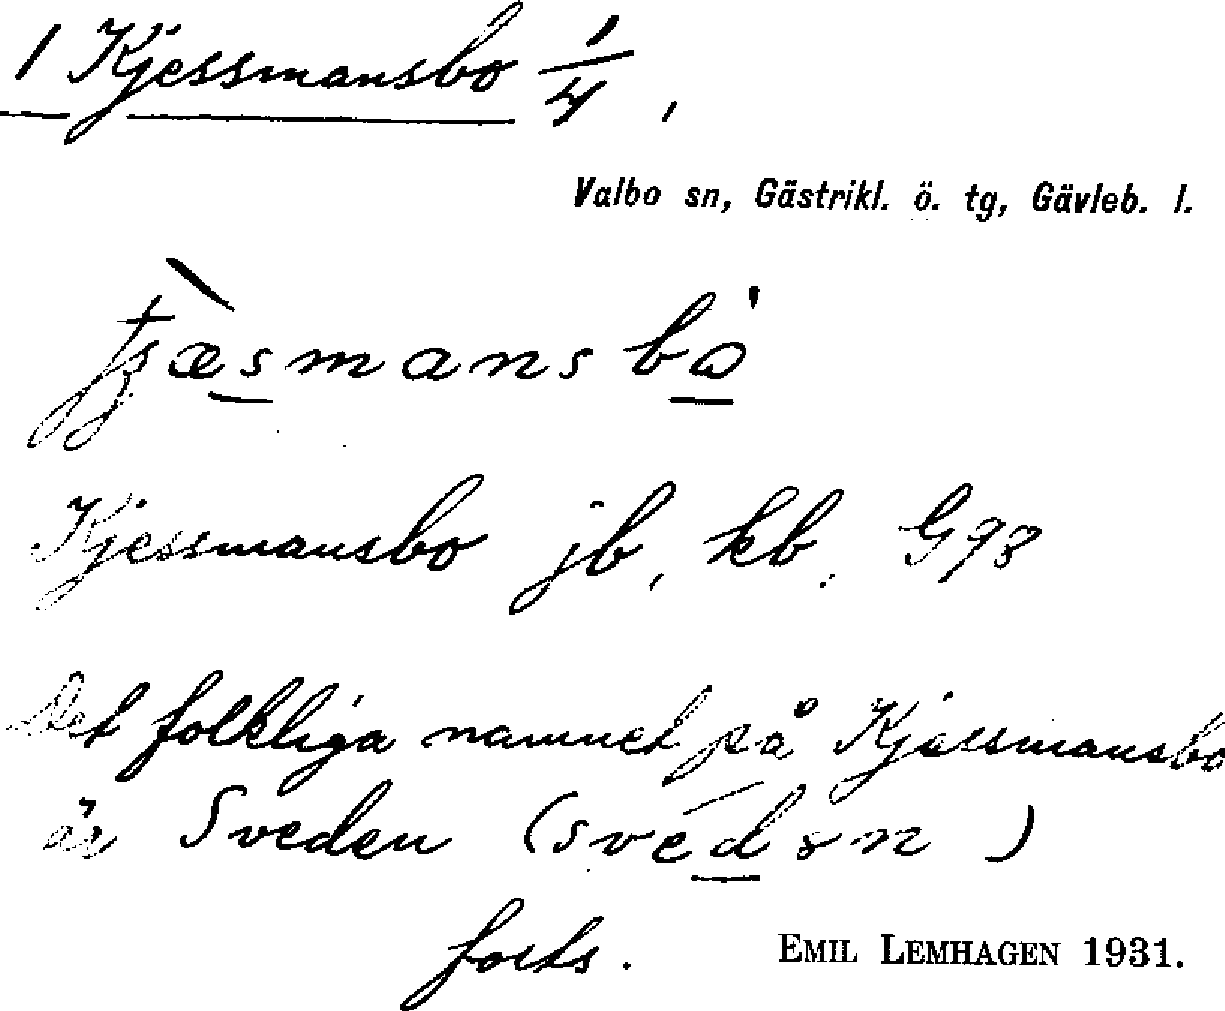 1 Kjessmansbo 1/4,
Valbo sn, Gästrikl. ö. tg, Gävleb. l.
Kjessmansbo jb, kb, G93
Det folkliga namnet på Kjessmansbo
är Sveden (svédən)
forts.
EMIL LEMHAGEN 1931.